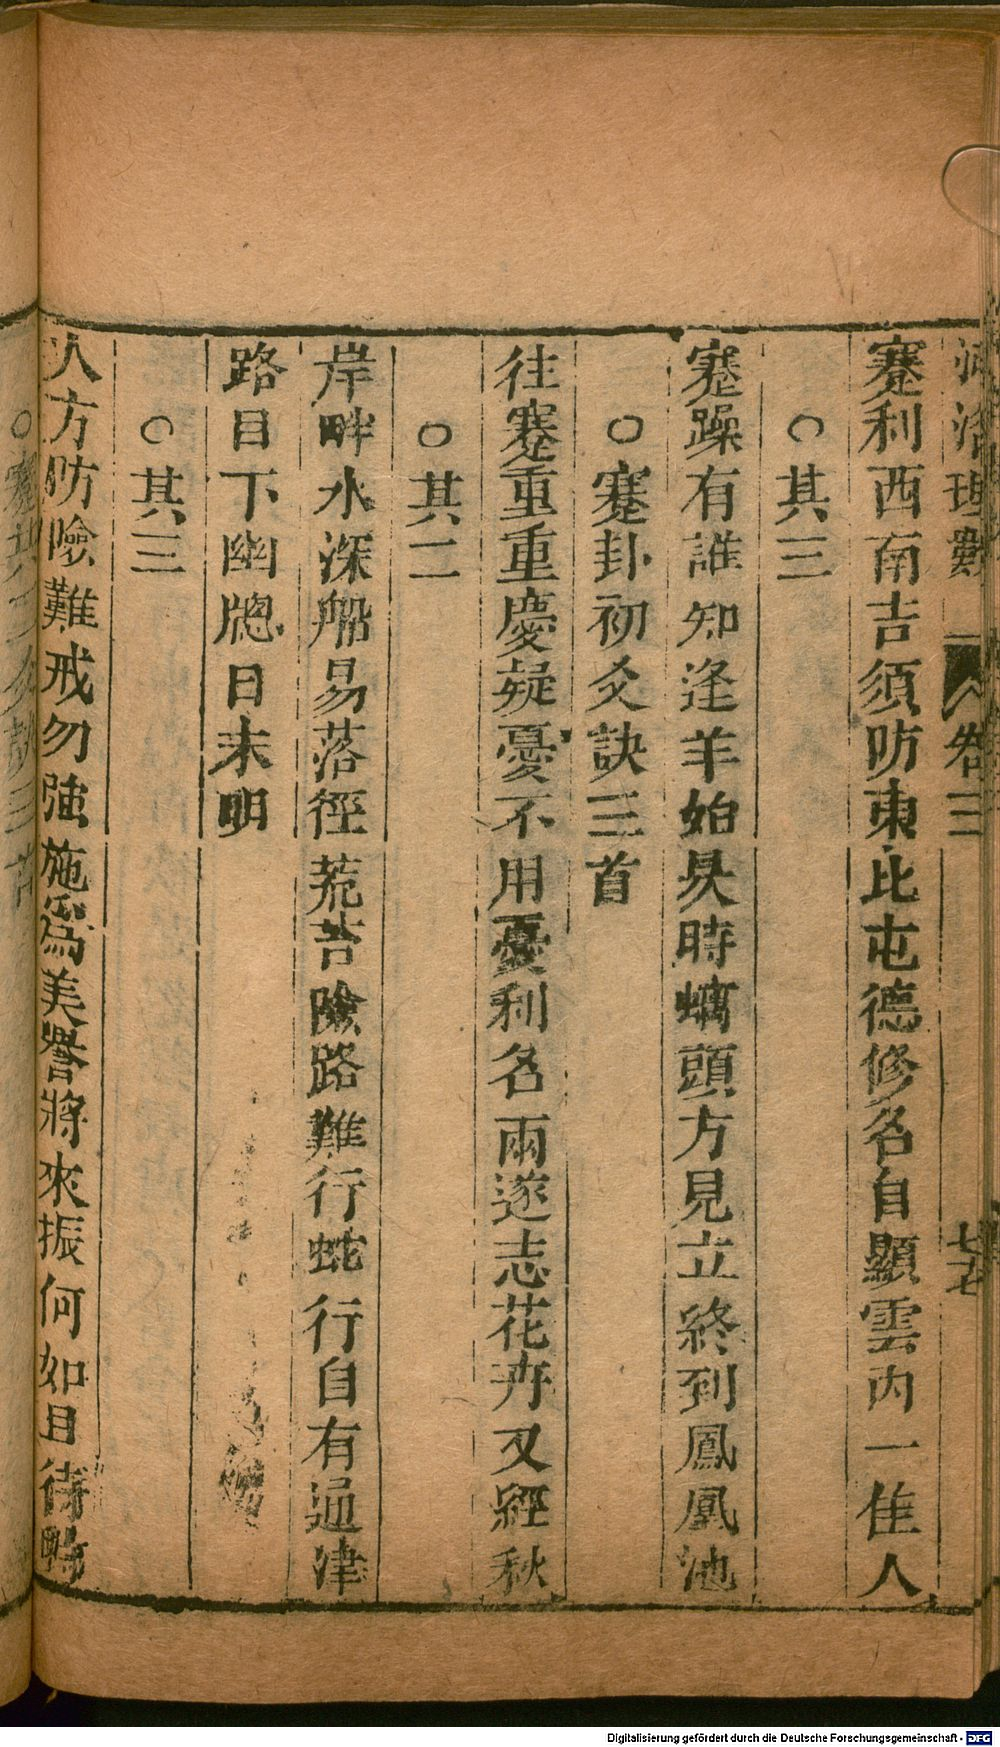 河洛理數　卷三　七
蹇利西南吉須防東北屯德修名自顯雲內一隹人
○其三
蹇躁有誰知逢羊始昃時螭頭方見立終到鳳凰池
○蹇卦初爻訣三首
往蹇重重慶疑憂不用憂利名兩遂志花卉又經秋
○其二
岸畔水深船易落徑荒苔險路難行蛇行自有通津
路目下幽牕日未明
○其三
人方防險難戒勿強施爲美譽將來振何如且待時
Digitalisierung gefördert durch die Deutsche Forschungsgemeinschaft - DFG